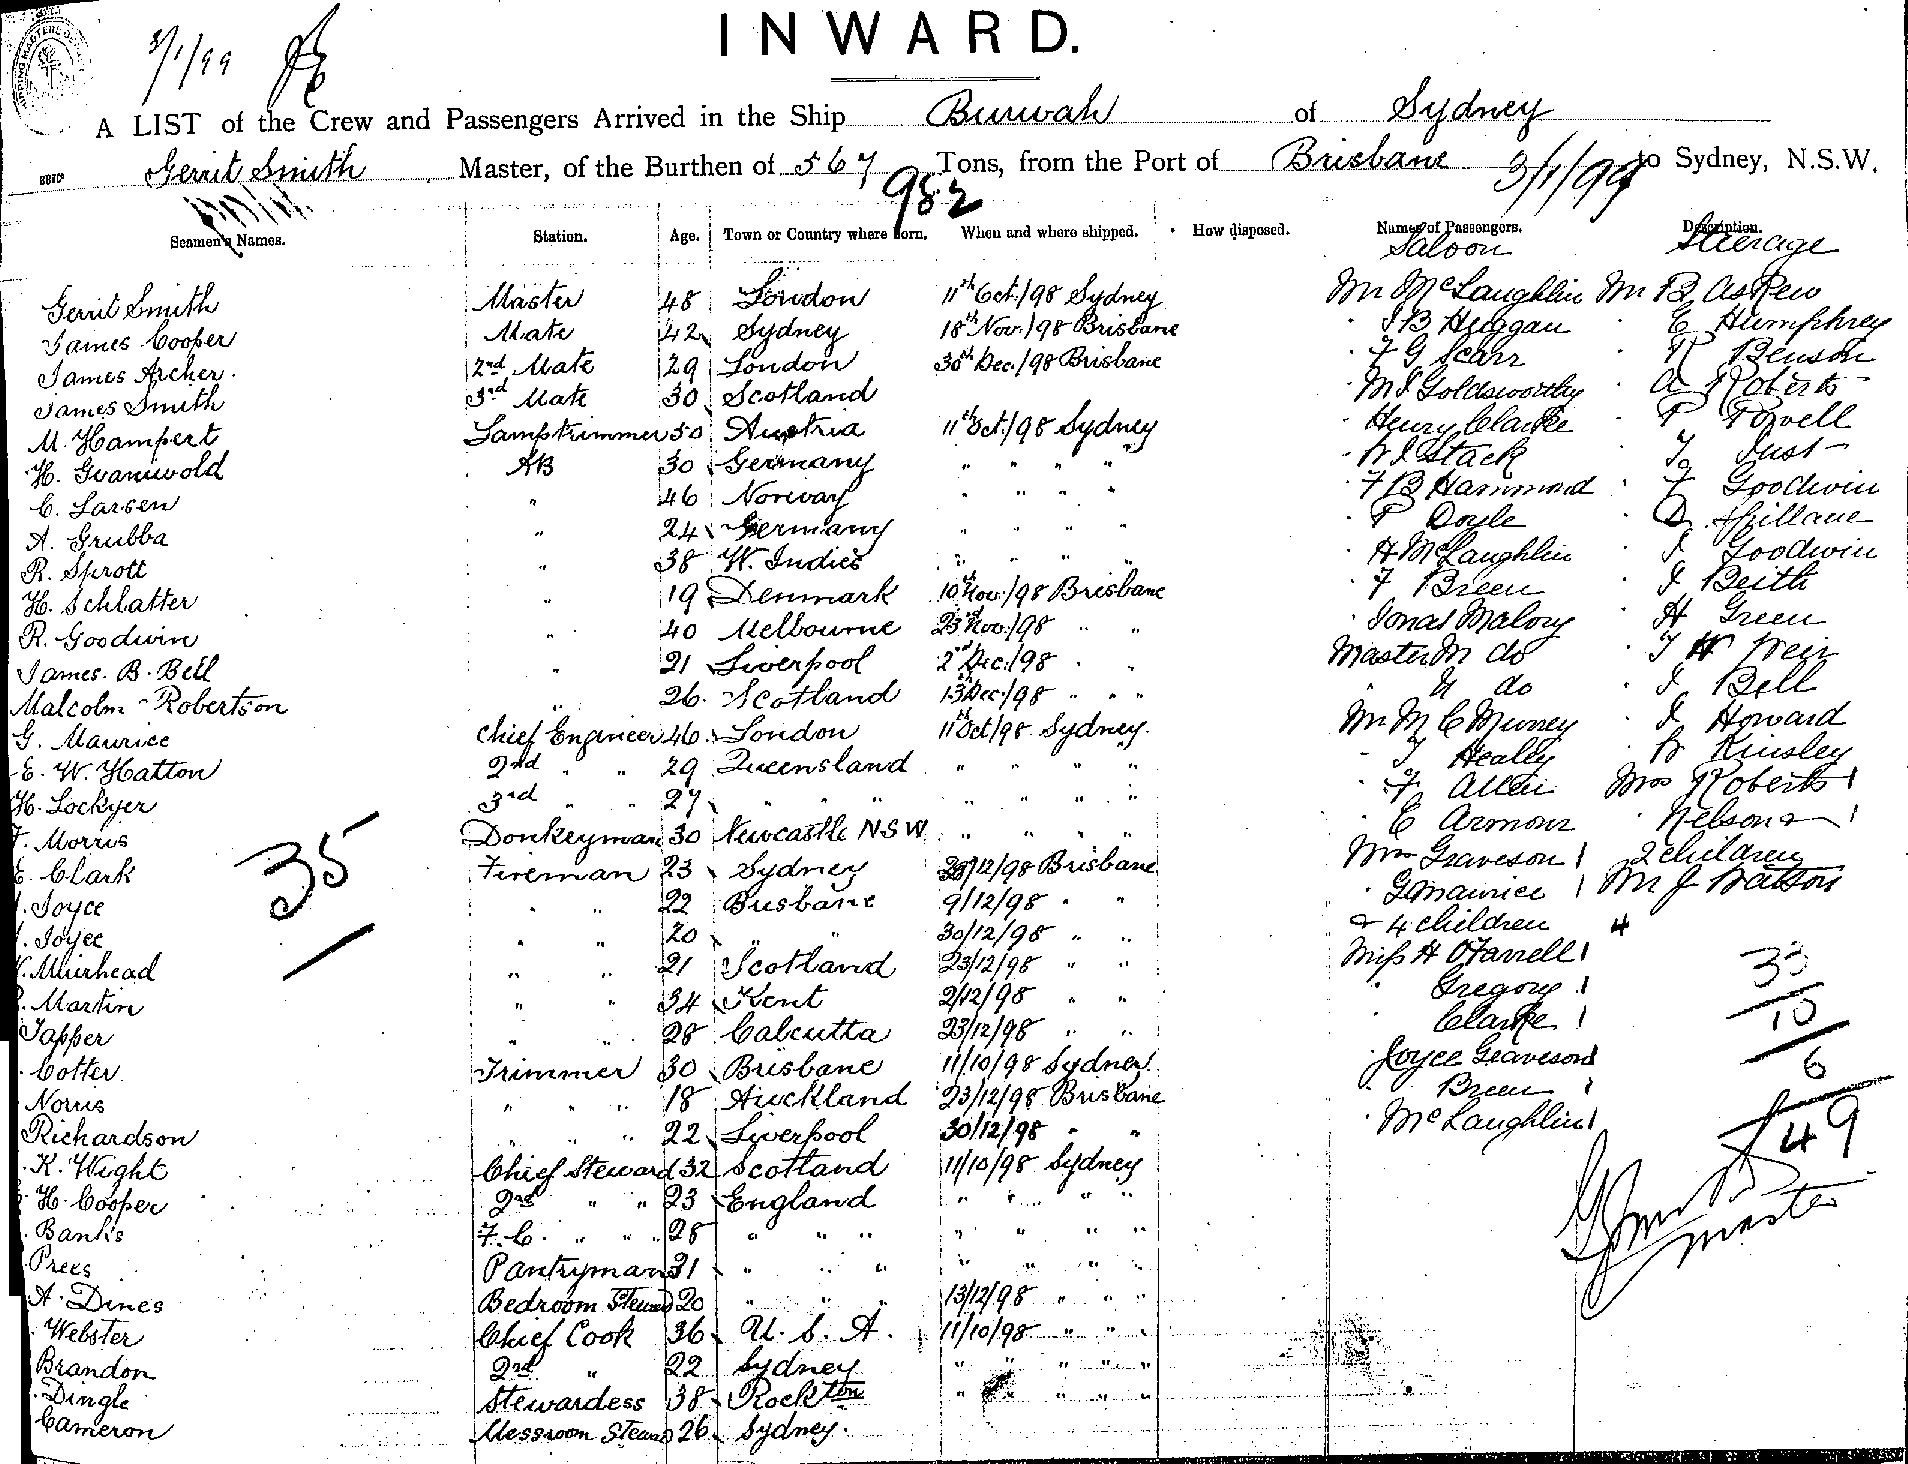 INWARD.
3/1/99
A LIST of the Crew and Passengers Arrived in the Ship Burwah of Sydney
Gerrit Smith Master, of the Burthen of 567 Tons, from the Port of Brisbane 3/1/99 to Sydney, N.S.W.
982
Seamen's Names. Station. Age. Town or Country where born. When and where shipped. How disposed. Names of Passengers. Description.
Saloon Steerage
Gerrit Smith Master 48 London 11th Oct./98 Sydney Mr McLaughlin Mr B Askew
James Cooper Mate 42 Sydney 18th Nov./98 Brisbane " J B Huggan " E Humphrey
James Archer. 2nd Mate 29 London 30th Dec./98 Brisbane " F G Scarr " R Benson
James Smith 3rd Mate 30 Scotland " M J Goldsworthy A Roberts
M. Hampert Lamptrimmer 50 Austria 11th Oct./98 Sydney " Henry Clarke " P Powell
H. Gvaruvold AB 30 Germany " " " " " W J Stack " T Just
C. Larsen " 46 Norway " " " " " F B Hammond " F Goodwin
A. Grubba " 24 Germany " " " " " P Doyle " D Spillane
R. Sprott " 38 W. Indies " " " " " H McLaughlin " J Goodwin
H. Schlatter " 19 Denmark 10th Nov./98 Brisbane " F Breen " J Beith
R. Goodwin " 40 Melbourne 23rd Nov./98 " " " Jonas Malony " H Green
James. B. Bell " 21 Liverpool 2nd Dec./98 " " Master M do " J H Weir
Malcolm Robertson " 26. Scotland 13th Dec./98 " " " " do " J Bell
G. Maurice Chief Engineer 46 London 11th Oct/98 Sydney. Mr M C Murney " J Howard
E. W. Hatton 2nd " " 29 Queensland " " " " " T Healey " W Kinsley
H. Lockyer 3rd " " 27 " " " " " " " " F Allen Mrs Roberts 1
F. Morris Donkeyman 30 Newcastle NSW " " " " " E Armour " Nelson & 1
E. Clark Fireman 23 Sydney 28/12/98 Brisbane Mrs Graveson 1 2 children
Joyce " " 22 Brisbane 9/12/98 " " " G Maurice 1 Mr J Watson
Joyce " " 20 " " 30/12/98 " " & 4 children 4
Muirhead " " 21 Scotland 23/12/98 " " Miss H O'Farrell 1
Martin " " 34 Kent 2/12/98 " " " Gregory 1
Tapper " " 28 Calcutta 23/12/98 " " " Clarke 1
Cotter Trimmer 30 Brisbane 11/10/98 Sydney " Joyce Graveson 1
Norris " " 18 Auckland 23/12/98 Brisbane " Breen 1
Richardson " " " 22 Liverpool 30/12/98 " " " McLaughlin 1
K. Wight Chief Steward 32 Scotland 11/10/98 Sydney
H. Cooper 2nd " " 23 England " " " "
Banks F. C. " " " 28 " " " " " " "
Prees Pantryman 31 " " " " " " "
A. Dines Bedroom Steward 20 " " " 13/12/98 " " "
Webster Chief Cook 36 U. S. A. 11/10/98 " " "
Brandon 2nd " 22 Sydney " " " " "
Dingle Stewardess 38 Rockton " " " " "
Cameron Messroom Steward 26 Sydney.
35
33
10
6
49
Master